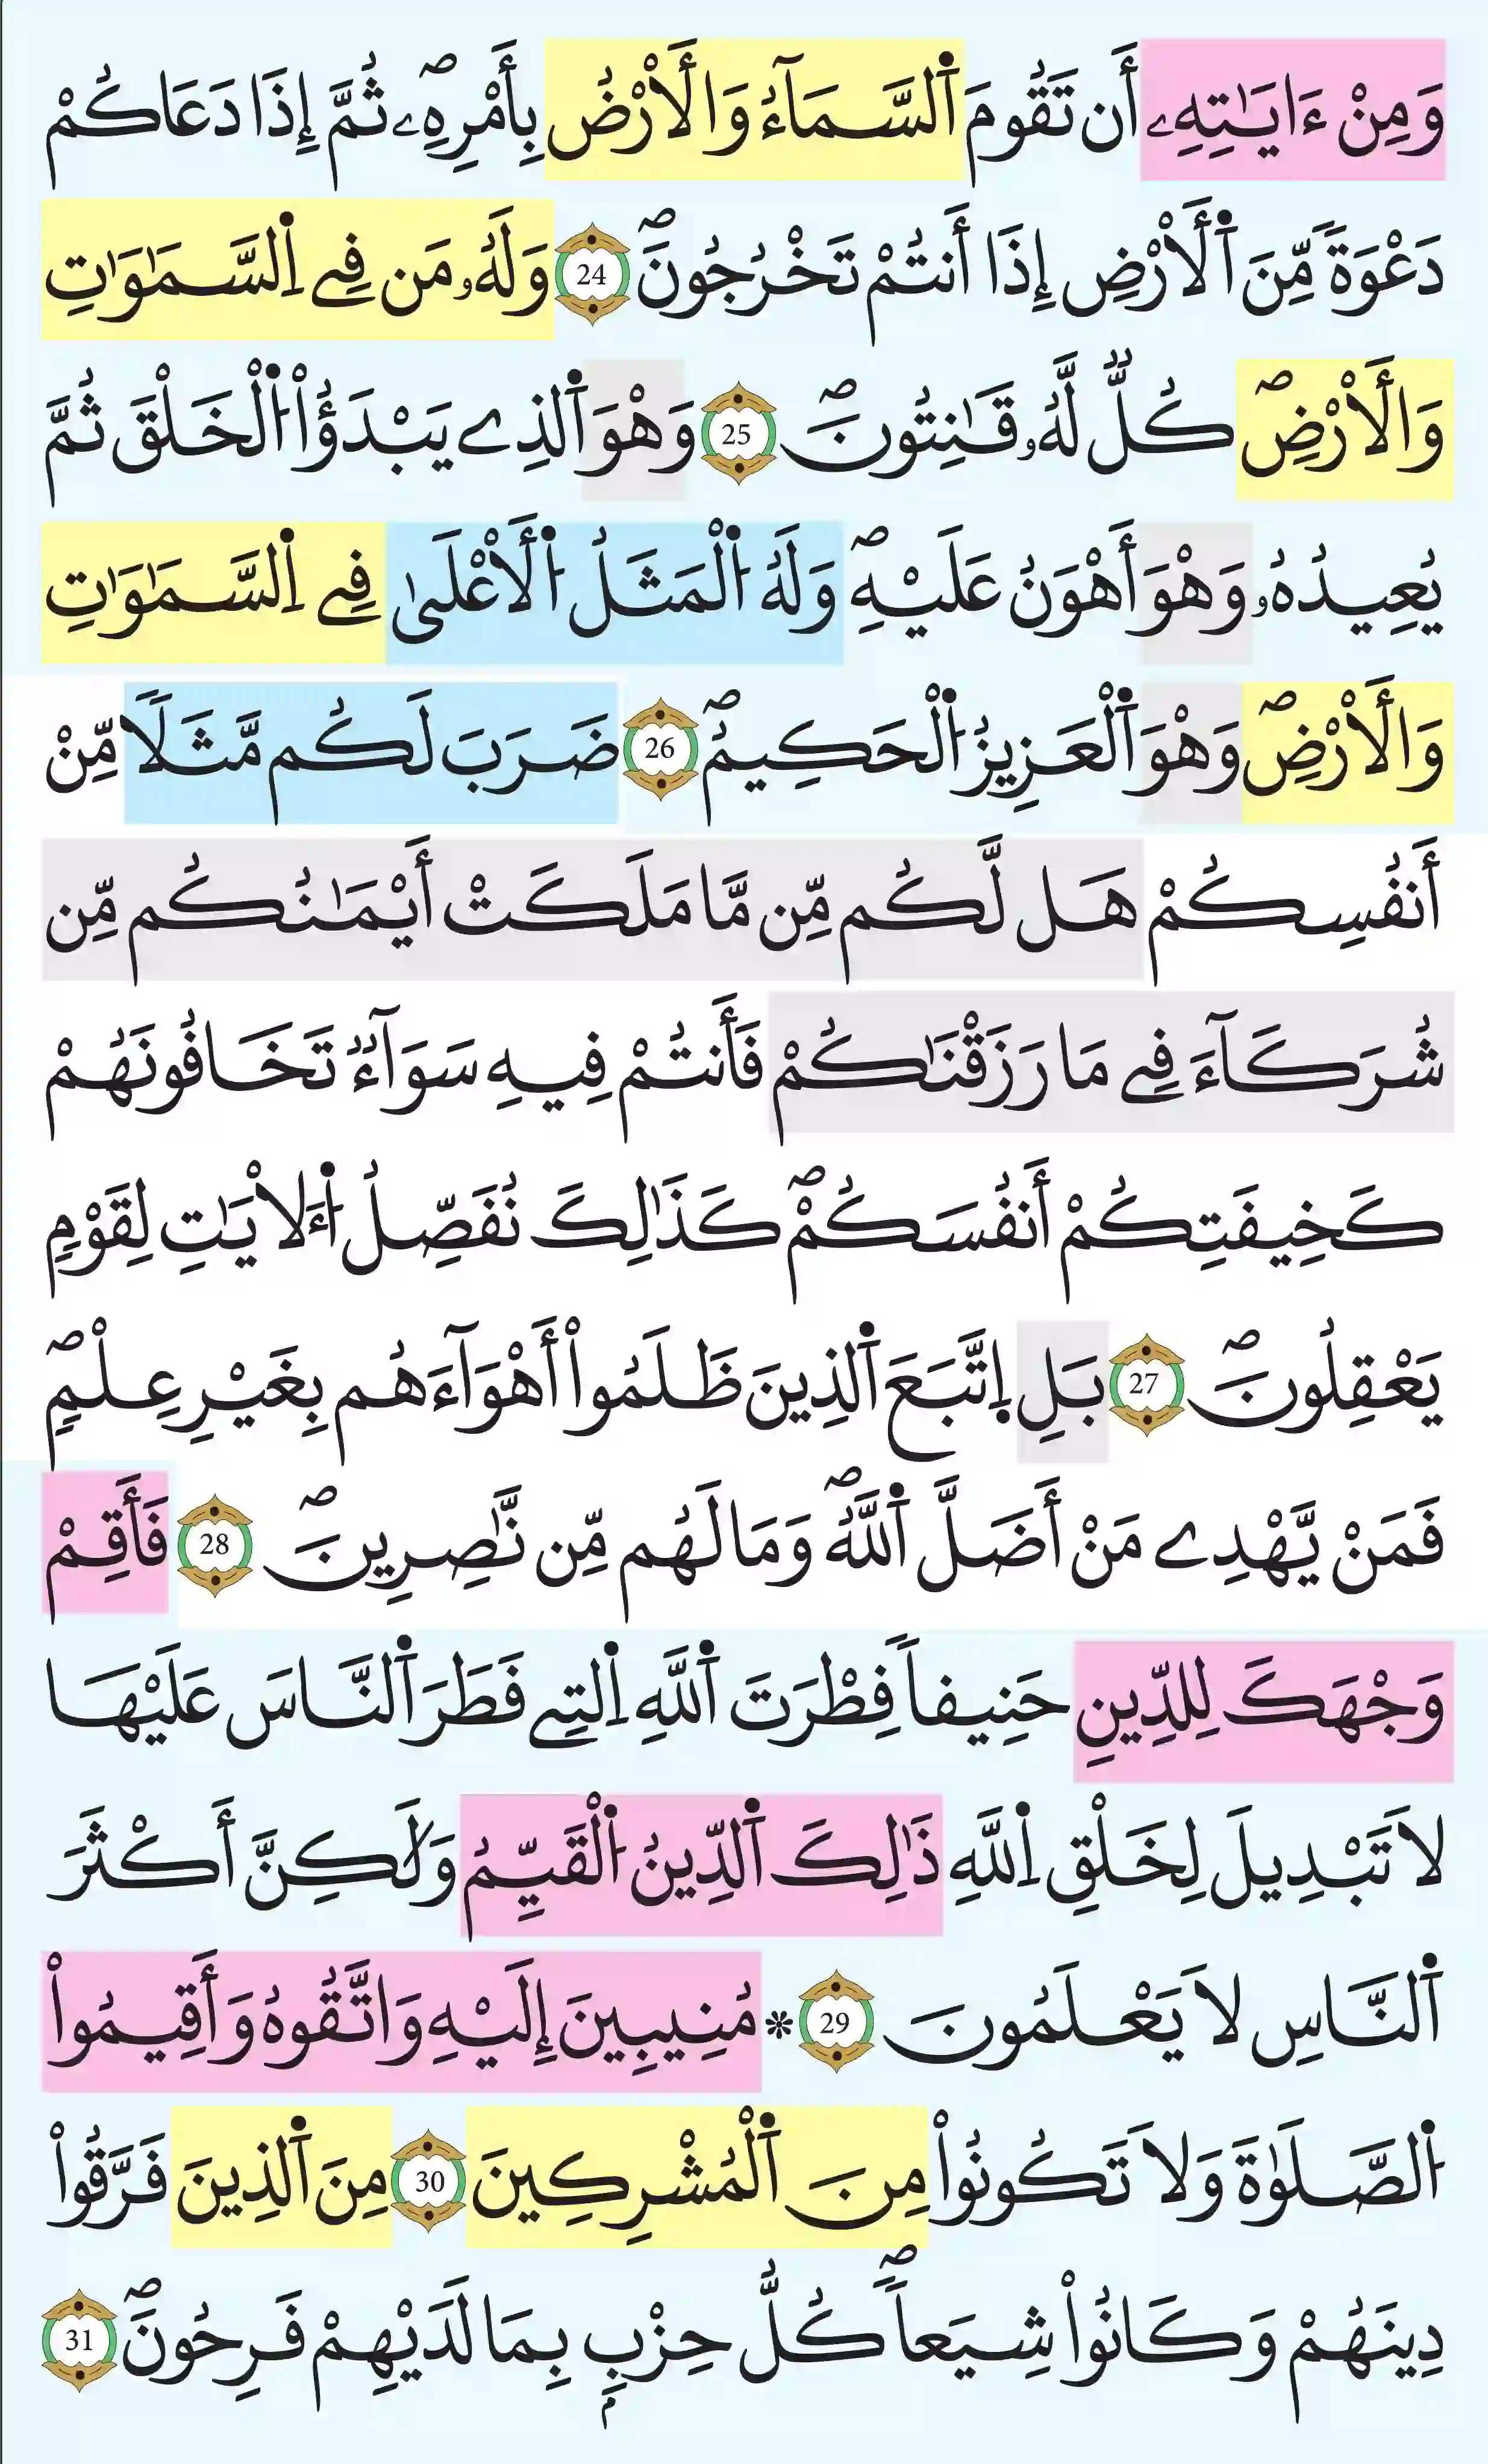 وَمِنْ ءَايَٰتِهِۦ أَن تَقُومَ اَ۬لسَّمَآءُ وَالَارْضُ بِأَمْرِهِۦۖ ثُمَّ إِذَا دَعَاكُمْ
دَعْوَةٗ مِّنَ اَ۬لَارْضِ إِذَا أَنتُمْ تَخْرُجُونَۖ 24 وَلَهُۥ مَن فِے اِ۬لسَّمَٰوَٰتِ
وَالَارْضِۖ كُلّٞ لَّهُۥ قَٰنِتُونَۖ 25 وَهْوَ اَ۬لذِے يَبْدَؤُاْ اُ۬لْخَلْقَ ثُمَّ
يُعِيدُهُۥ وَهْوَ أَهْوَنُ عَلَيْهِۖ وَلَهُ اُ۬لْمَثَلُ اُ۬لَاعْلَىٰ فِے اِ۬لسَّمَٰوَٰتِ
وَالَارْضِۖ وَهْوَ اَ۬لْعَزِيزُ اُ۬لْحَكِيمُۖ 26 ضَرَبَ لَكُم مَّثَلاٗ مِّنْ
أَنفُسِكُمْ هَل لَّكُم مِّن مَّا مَلَكَتْ أَيْمَٰنُكُم مِّن
شُرَكَآءَ فِے مَا رَزَقْنَٰكُمْ فَأَنتُمْ فِيهِ سَوَآءٞ تَخَافُونَهُمْ
كَخِيفَتِكُمْ أَنفُسَكُمْۖ كَذَٰلِكَ نُفَصِّلُ اُ۬لَايَٰتِ لِقَوْمٖ
يَعْقِلُونَۖ 27 بَلِ اِ۪تَّبَعَ اَ۬لذِينَ ظَلَمُواْ أَهْوَآءَهُم بِغَيْرِ عِلْمٖۖ
فَمَنْ يَّهْدِے مَنْ أَضَلَّ اَ۬للَّهُۖ وَمَا لَهُم مِّن نَّٰصِرِينَۖ 28 فَأَقِمْ
وَجْهَكَ لِلدِّينِ حَنِيفاٗ فِطْرَتَ اَ۬للَّهِ اِ۬لتِے فَطَرَ اَ۬لنَّاسَ عَلَيْهَا
لَا تَبْدِيلَ لِخَلْقِ اِ۬للَّهِ ذَٰلِكَ اَ۬لدِّينُ اُ۬لْقَيِّمُ وَلَٰكِنَّ أَكْثَرَ
اَ۬لنَّاسِ لَا يَعْلَمُونَ 29 * مُنِيبِينَ إِلَيْهِ وَاتَّقُوهُ وَأَقِيمُواْ
اُ۬لصَّلَوٰةَ وَلَا تَكُونُواْ مِنَ اَ۬لْمُشْرِكِينَ 30 مِنَ اَ۬لذِينَ فَرَّقُواْ
دِينَهُمْ وَكَانُواْ شِيَعاٗۖ كُلُّ حِزْبِۢ بِمَا لَدَيْهِمْ فَرِحُونَۖ 31